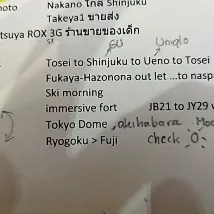 oto Nakano ใกล้ Shinjuku
Takeya1 ขายส่ง
tsuya ROX 3G ร้านขายของเด็ก
GU Uniqlo
Tosei to Shinjuku to Ueno to Tosei
Fukaya-Hazonona out let ...to naspa
Ski morning
immersive fort JB21 to JY29 v
Tokyo Dome, akihabara
Ryogoku > Fuji check